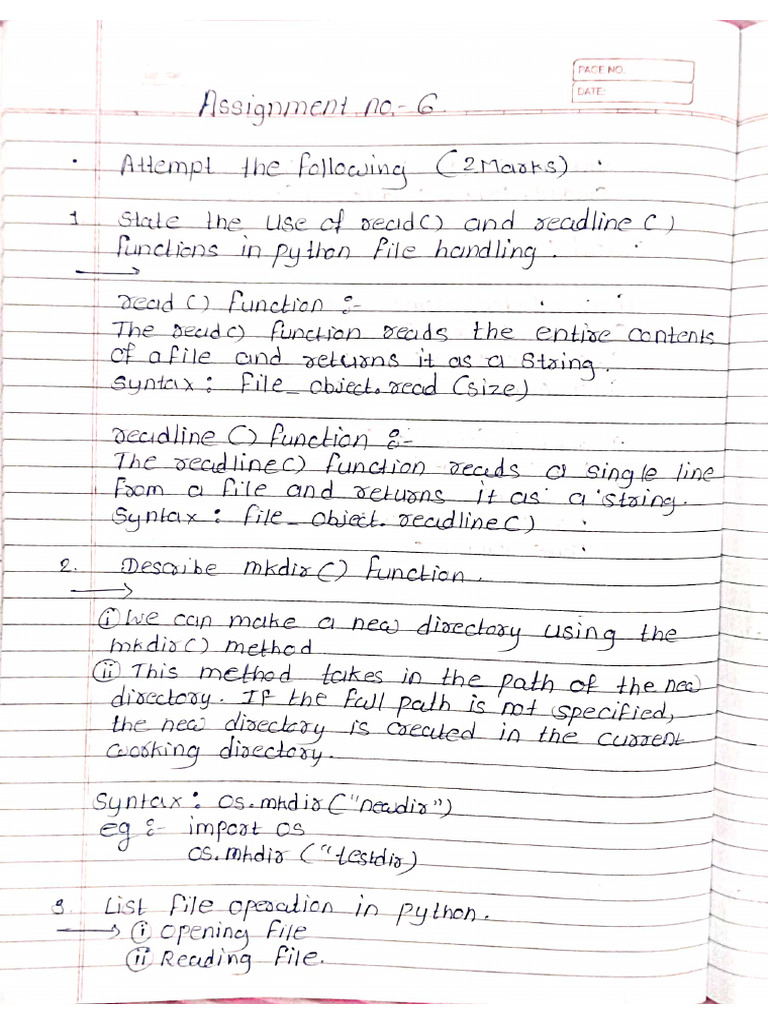 PAGE NO.
DATE:
Assignment no.- 6
Attempt the following (2 Marks)
1 State the use of read() and readline()
functions in python file handling.
read() function :-
The read() function reads the entire contents
of a file and returns it as a String.
Syntax : file_object.read (size)
readline () function :-
The readline() function reads a single line
from a file and returns it as a string.
Syntax : file_object.readline()
2. Describe mkdir() function.
(i) We can make a new directory using the
mkdir() method
(ii) This method takes in the path of the new
directory. If the full path is not specified,
the new directory is created in the current
working directory.
Syntax : os.mkdir("newdir")
eg :- import os
os.mkdir ("testdir)
3. List file operation in python.
(i) Opening file
(ii) Reading file.